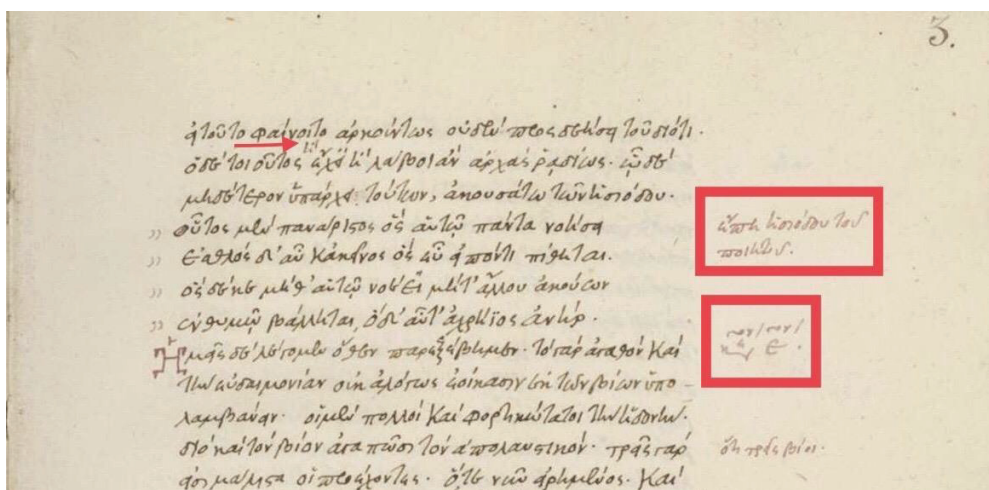 3.
εἰ τοῦτο φαίνοιτο ἀρκούντως οὐδὲν προσδεήσει τοῦ διότι.
ὁ δὲ τοιοῦτος ἔχει ἢ λάβοι ἂν ἀρχὰς ῥαδίως. ᾧ δὲ
μηδέτερον ὑπάρχει τούτων, ἀκουσάτω τῶν ἡσιόδου.
" οὗτος μὲν πανάριστος ὃς αὐτῷ πάντα νοήσῃ
ἔπη ἡσιόδου τοῦ
ποιητοῦ.
" ἐσθλὸς δ' αὖ κἀκεῖνος ὃς εὖ εἰπόντι πίθηται.
" ὃς δέ κε μήτ' αὐτῷ νοέει μήτ' ἄλλου ἀκούων
" ἐν θυμῷ βάλληται, ὁ δ' αὖτ' ἀχρήϊος ἀνήρ.
Ἡμεῖς δὲ λέγομεν ὅθεν παρεξέβημεν. τὸ γὰρ ἀγαθὸν καὶ
τὴν εὐδαιμονίαν οὐκ ἀλόγως ἐοίκασιν ἐκ τῶν βίων ὑπο
λαμβάνειν. οἱ μὲν πολλοὶ καὶ φορτικώτατοι τὴν ἡδονήν.
διὸ καὶ τὸν βίον ἀγαπῶσι τὸν ἀπολαυστικόν. τρεῖς γάρ
ὅτι τρεῖς βίοι.
εἰσι μάλιστα οἱ προέχοντες. ὅ τε νῦν εἰρημένος. καὶ